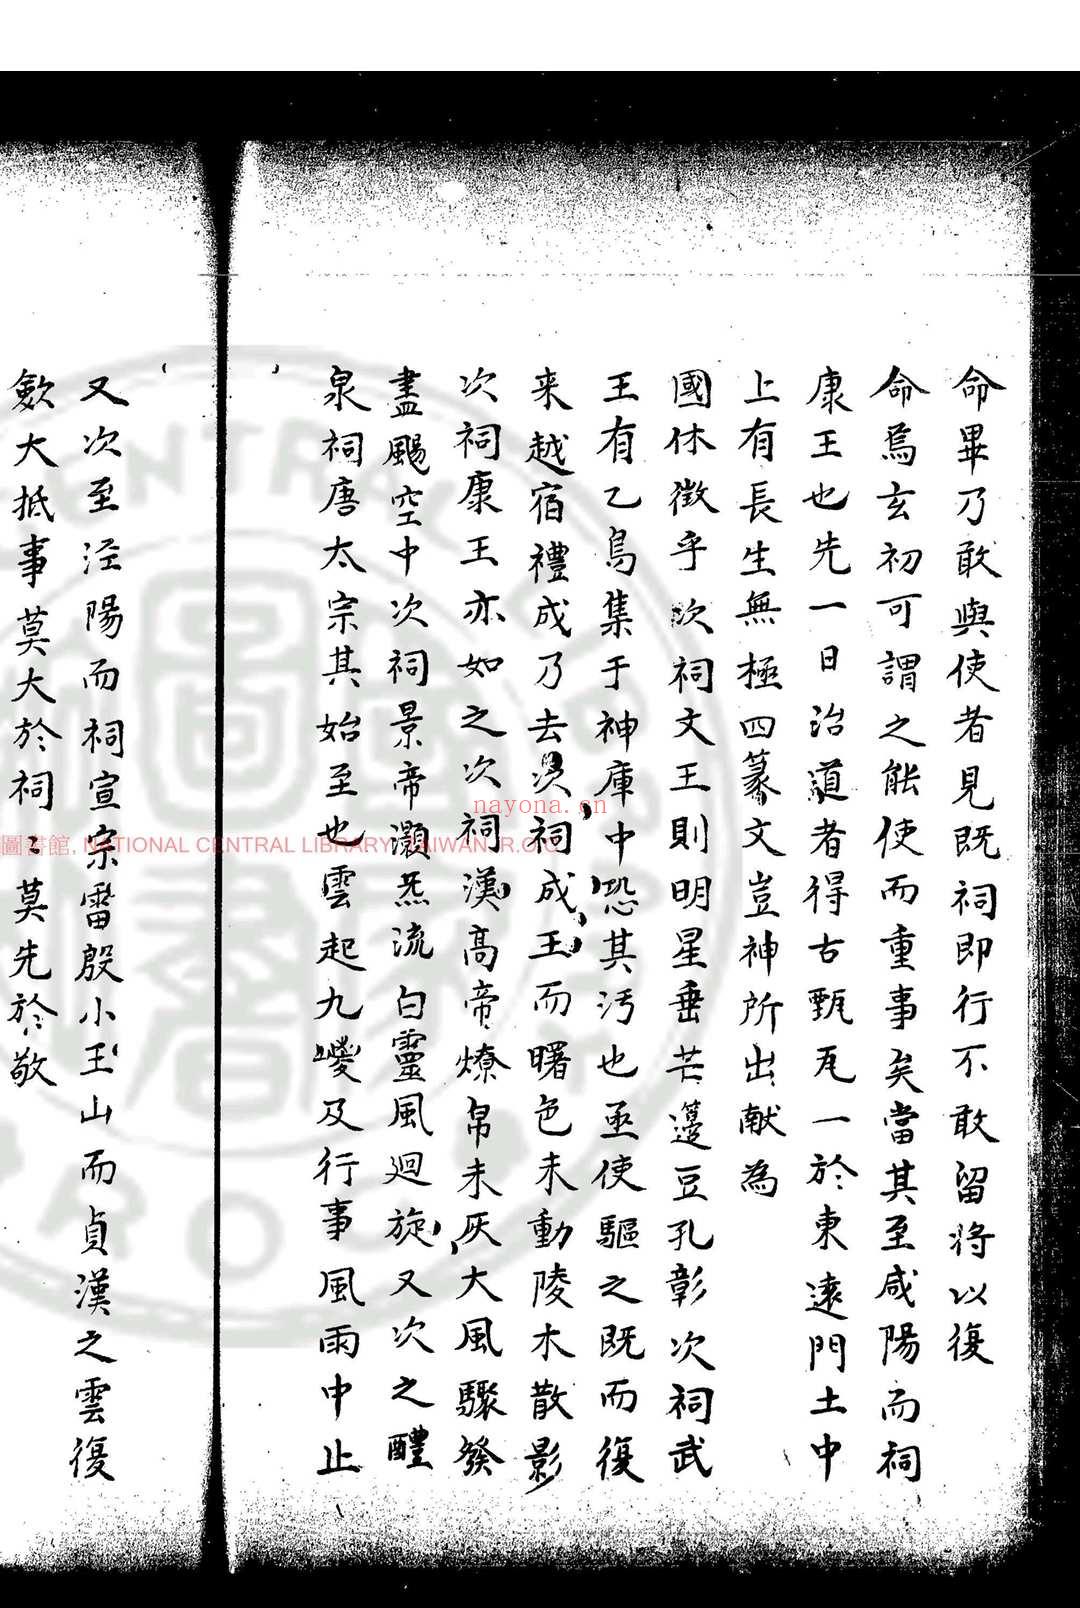 命畢乃敢與使者見既祠即行不敢留將以復
命焉玄初可謂之能使而重事矣當其至咸陽而祠
康王也先一日治道者得古甎瓦一於東遠門土中
上有長生無極四篆文豈神所出献為
國休徵乎次祠文王則明星垂芒籩豆孔彰次祠武
王有乙鳥集于神庫中恐其汚也亟使驅之既而復
来越宿禮成乃去次祠成王而曙色未動陵木散影
次祠康王亦如之次祠漢高帝燎帛未灰大風驟發
盡颺空中次祠景帝灝炁流白靈風迴旋又次之醴
泉祠唐太宗其始至也雲起九嵕及行事風雨中止
又次至涇陽而祠宣宗雷殷小王山而貞漢之雲復
歛大抵事莫大於祠〻莫先於敬
圖書館, NATIONAL CENTRAL LIBRARY, TAIWAN, R.O.C
nayona.cn